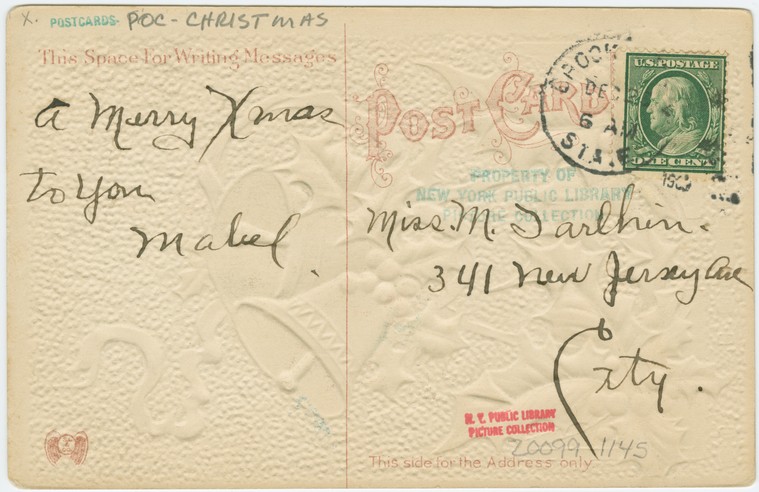 X. POSTCARDS- POC-CHRISTMAS
This Space For Writing Messages
A Merry Xmas
to You
Mabel.
POST CARD
DEC
6 AM
STA.
190
U.S. POSTAGE
ONE CENT
PROPERTY OF
NEW YORK PUBLIC LIBRARY
PICTURE COLLECTION
Miss. M.
341 New Jersey Ave
City.
N. Y. PUBLIC LIBRARY
PICTURE COLLECTION
20099 1145
This side for the Address only